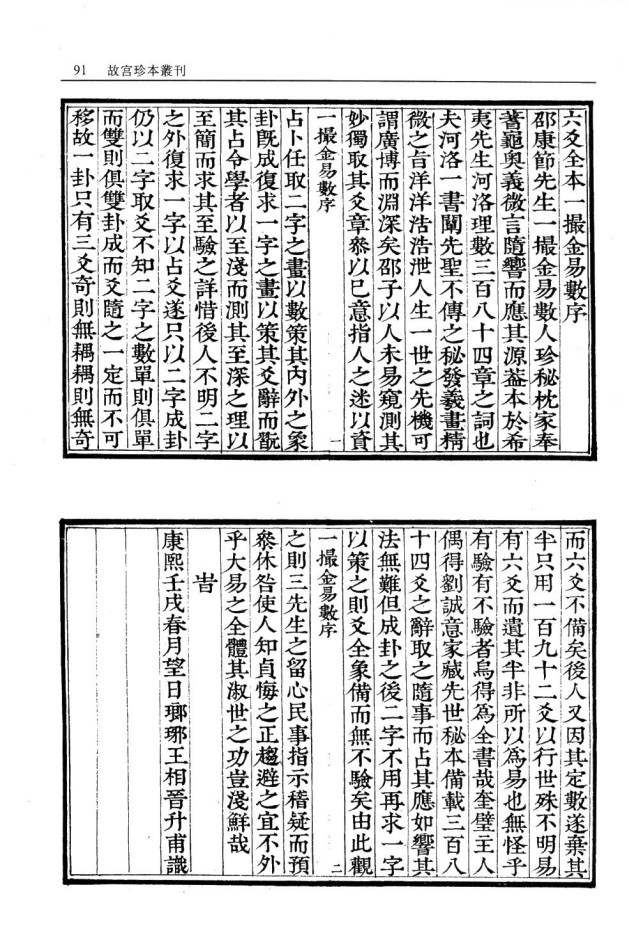 91 故宮珍本叢刊
六爻全本一撮金易數序
邵康節先生一撮金易數人珍秘枕家奉
蓍龜奧義微言隨響而應其源葢本於希
夷先生河洛理數三百八十四章之詞也
夫河洛一書闡先聖不傳之秘發羲畫精
微之旨洋洋浩浩泄人生一世之先機可
謂廣博而淵深矣邵子以人未易窺測其
妙獨取其爻章叅以巳意指人之迷以資
一撮金易數序 一
占卜任取二字之畫以數策其內外之象
卦旣成復求一字之畫以策其爻辭而翫
其占令學者以至淺而測其至深之理以
至簡而求其至驗之詳惜後人不明二字
之外復求一字以占爻遂只以二字成卦
仍以二字取爻不知二字之數單則俱單
而雙則俱雙卦成而爻隨之一定而不可
移故一卦只有三爻奇則無耦耦則無奇
而六爻不備矣後人又因其定數遂棄其
半只用一百九十二爻以行世殊不明易
有六爻而遺其半非所以爲易也無怪乎
有驗有不驗者烏得爲全書哉奎璧主人
偶得劉誠意家藏先世秘本備載三百八
十四爻之辭取之隨事而占其應如響其
法無難但成卦之後二字不用再求一字
以策之則爻全象備而無不驗矣由此觀
一撮金易數序 二
之則三先生之留心民事指示稽疑而預
叅休咎使人知貞悔之正趨避之宜不外
乎大易之全體其淑世之功豈淺鮮哉
旹
康熙壬戌春月望日瑯琊王相晉升甫識